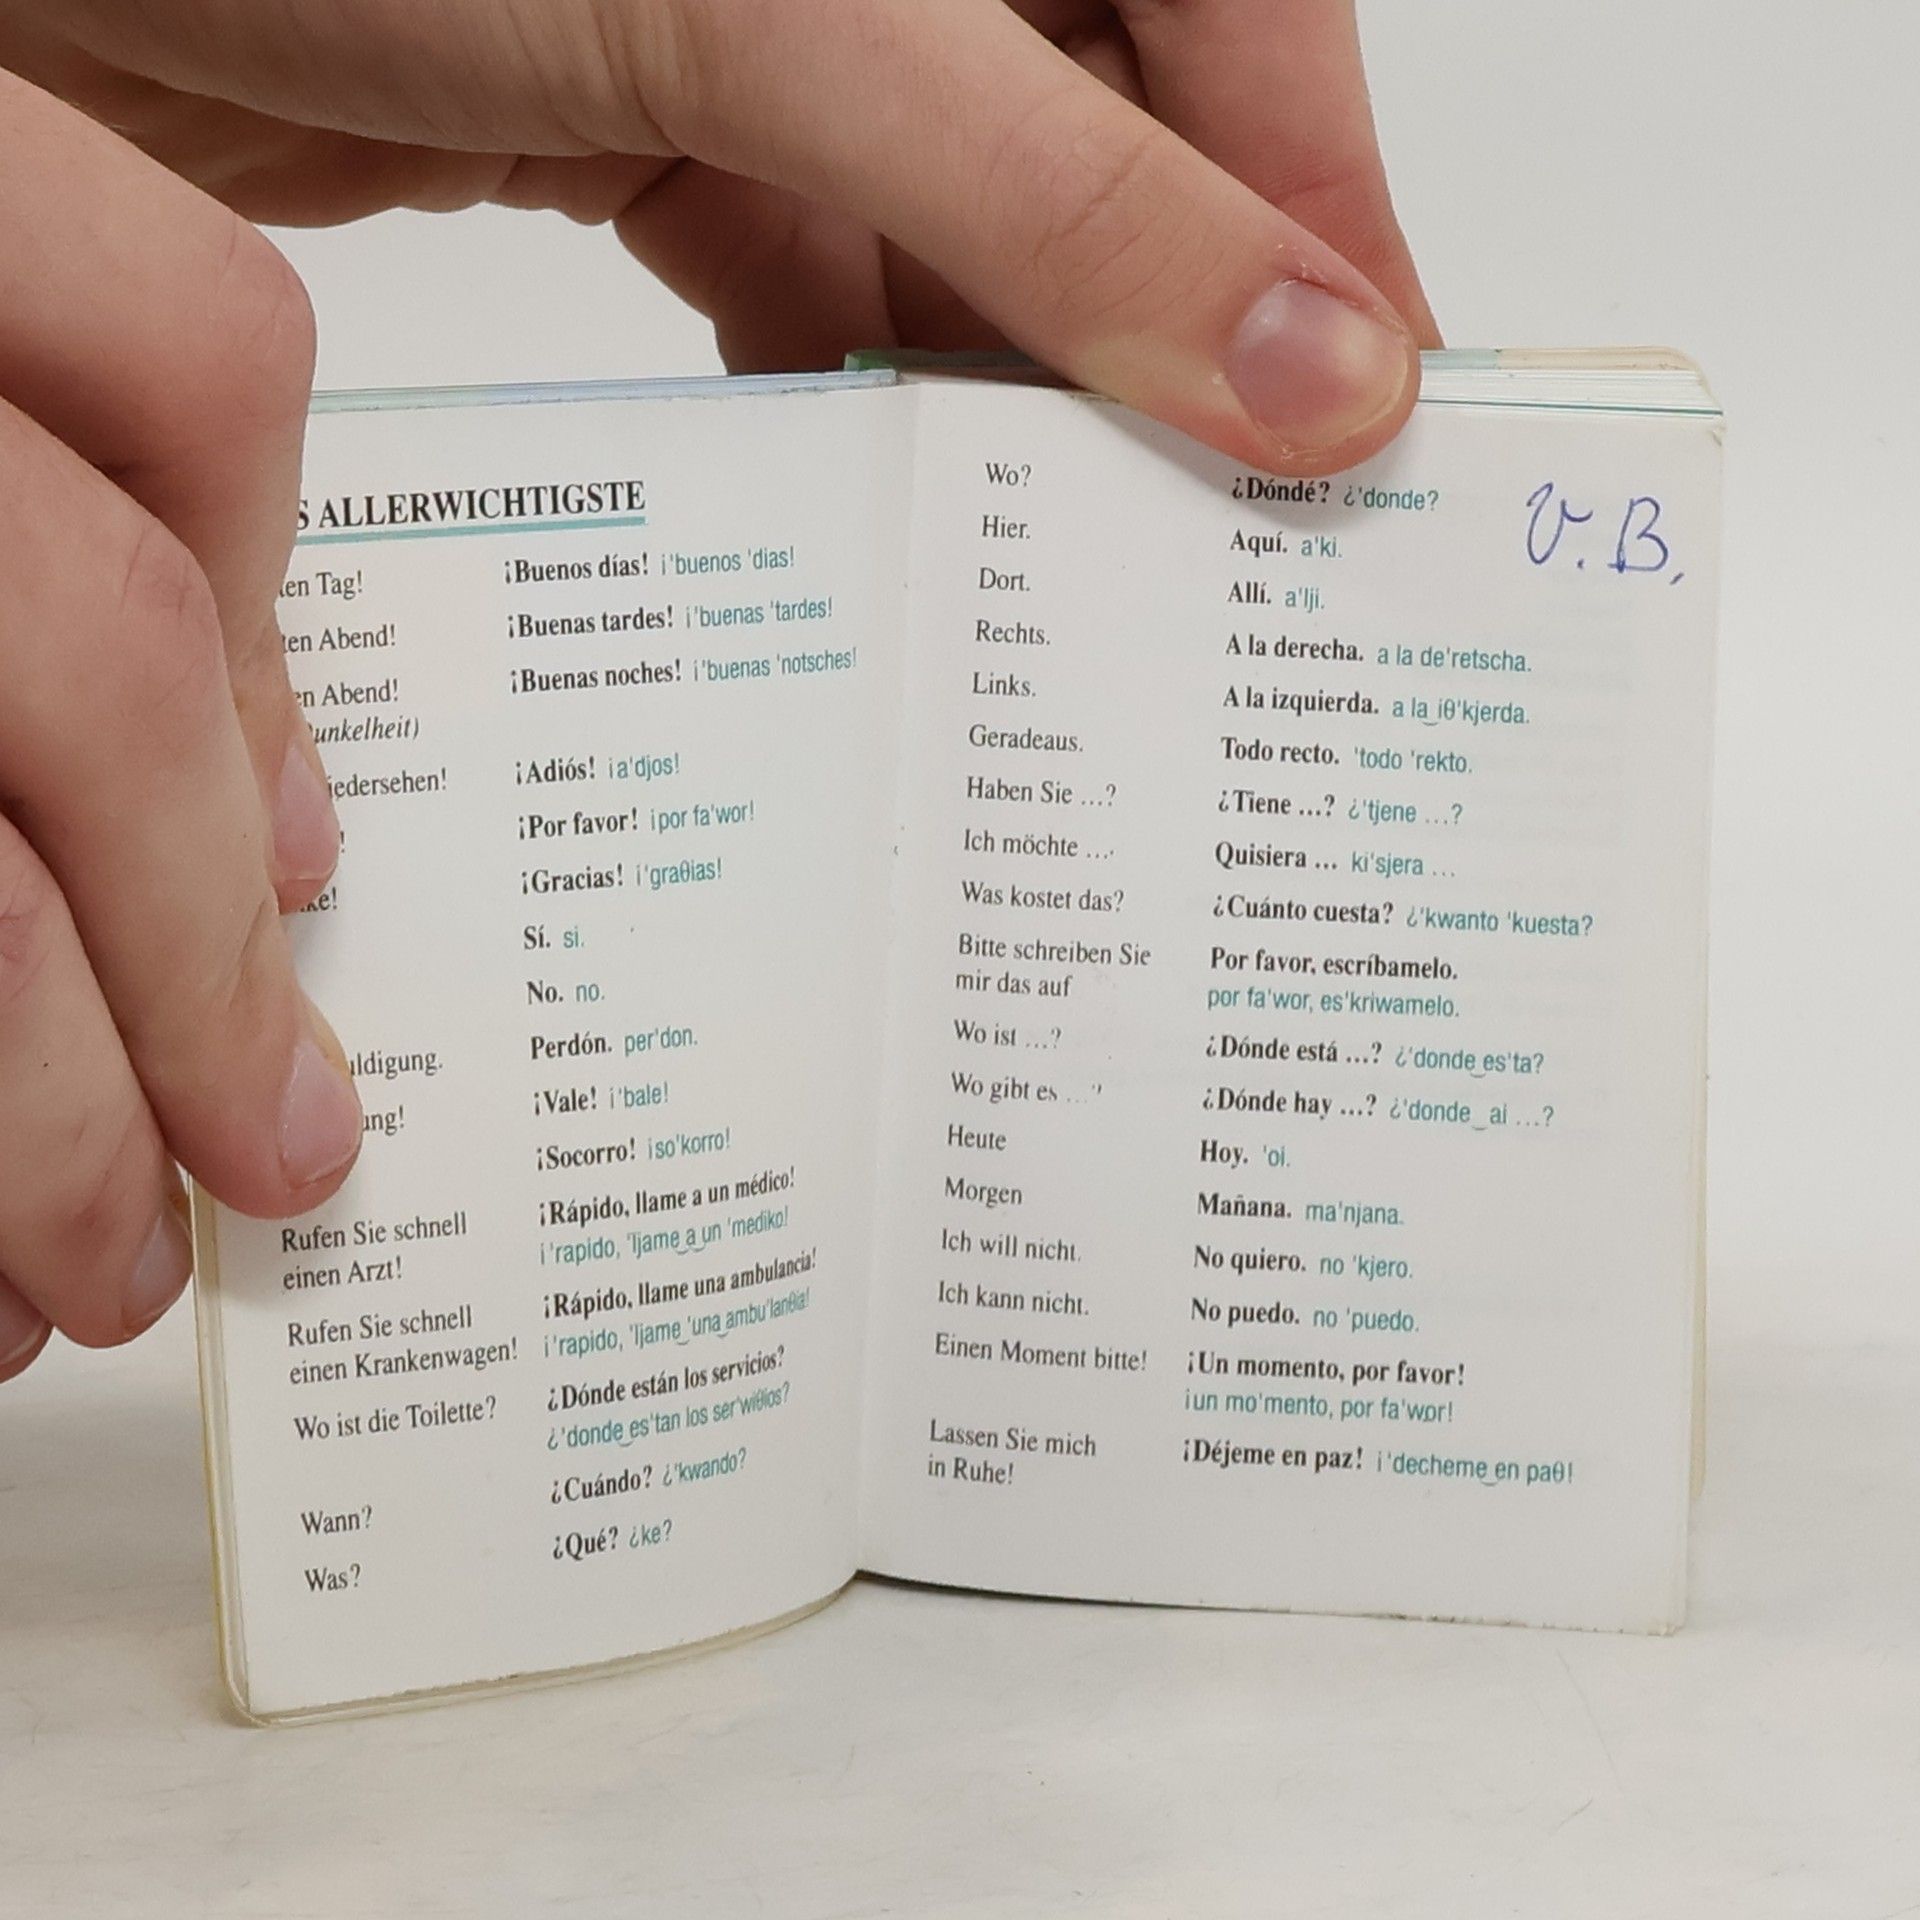 ALLERWICHTIGSTE
Tag! ¡Buenos días! ¡'buenos 'dias!
Abend! ¡Buenas tardes! ¡'buenas 'tardes!
Abend! ¡Buenas noches! ¡'buenas 'notsches!
¡Adiós! ¡a'djos!
¡Por favor! ¡por fa'wor!
¡Gracias! ¡'graθias!
Sí. si.
No. no.
Perdón. per'don.
¡Vale! ¡'bale!
¡Socorro! ¡so'korro!
Rufen Sie schnell ¡Rápido, llame a un médico!
einen Arzt! ¡'rapido, 'ljame‿a‿un 'mediko!
Rufen Sie schnell ¡Rápido, llame una ambulancia!
einen Krankenwagen! ¡'rapido, 'ljame‿'una‿ambu'lanθia!
Wo ist die Toilette? ¿Dónde están los servicios?
¿'donde‿es'tan los ser'wiθios?
Wann? ¿Cuándo? ¿'kwando?
Was? ¿Qué? ¿ke?
Wo? ¿Dóndé? ¿'donde?
V. B.
Hier. Aquí. a'ki.
Dort. Allí. a'lji.
Rechts. A la derecha. a la de'retscha.
Links. A la izquierda. a la‿iθ'kjerda.
Geradeaus. Todo recto. 'todo 'rekto.
Haben Sie ...? ¿Tiene ...? ¿'tjene ...?
Ich möchte ... Quisiera ... ki'sjera ...
Was kostet das? ¿Cuánto cuesta? ¿'kwanto 'kuesta?
Bitte schreiben Sie Por favor, escríbamelo.
mir das auf por fa'wor, es'kriwamelo.
Wo ist ...? ¿Dónde está ...? ¿'donde‿es'ta?
Wo gibt es ...? ¿Dónde hay ...? ¿'donde‿ai ...?
Heute Hoy. 'oi.
Morgen Mañana. ma'njana.
Ich will nicht. No quiero. no 'kjero.
Ich kann nicht. No puedo. no 'puedo.
Einen Moment bitte! ¡Un momento, por favor!
¡un mo'mento, por fa'wor!
Lassen Sie mich ¡Déjeme en paz! ¡'decheme‿en paθ!
in Ruhe!